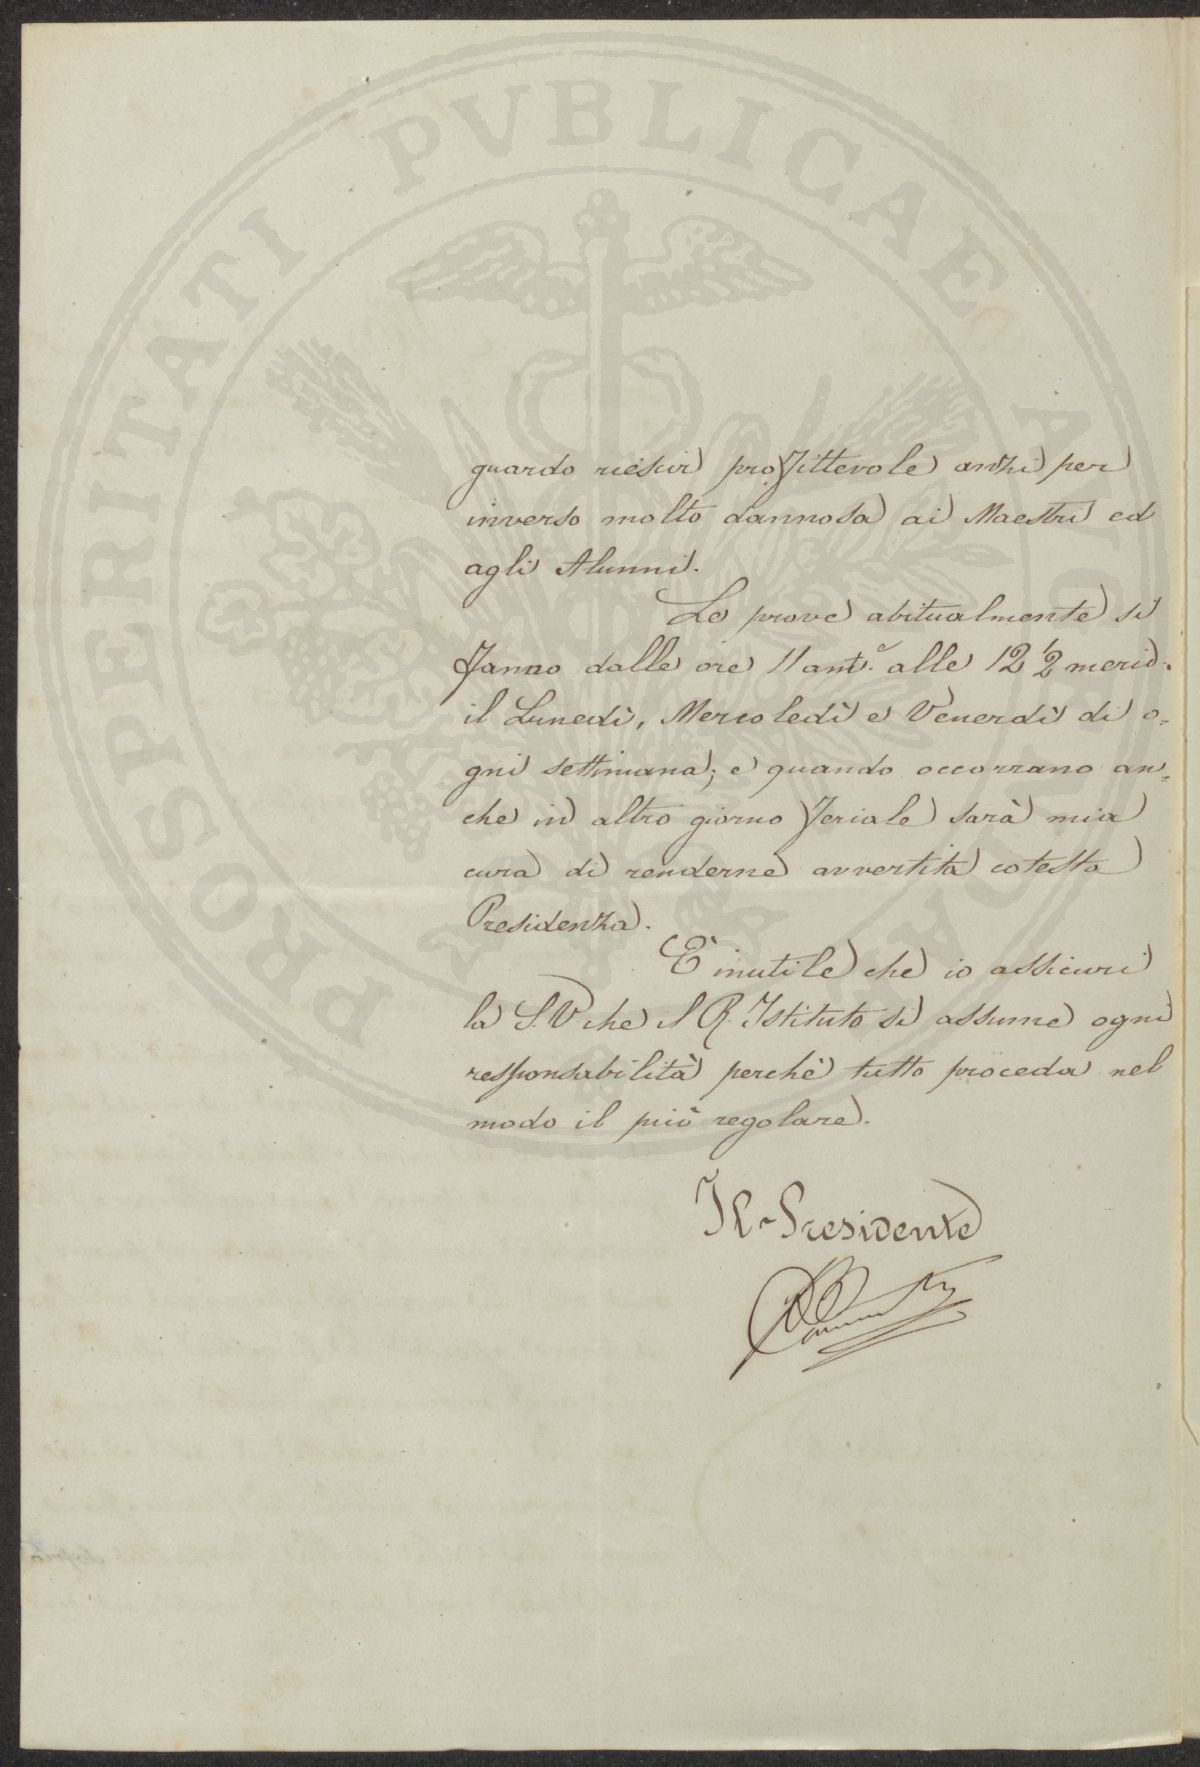 PROSPERITATI PVBLICAE AVGENDAE
guardo riescir profittevole anzi per
inverso molto dannosa ai Maestri ed
agli Alunni.
Le prove abitualmente si
fanno dalle ore 11 ant.e alle 12 1/2 merid.
il Lunedì, Mercoledì e Venerdì di o=
gni settimana; e quando occorrano an=
che in altro giorno feriale sarà mia
cura di renderne avvertita cotesta
Presidenza.
È inutile che io assicuri
la S.V. che il R. Istituto si assume ogni
responsabilità perché tutto proceda nel
modo il più regolare.
Il Presidente